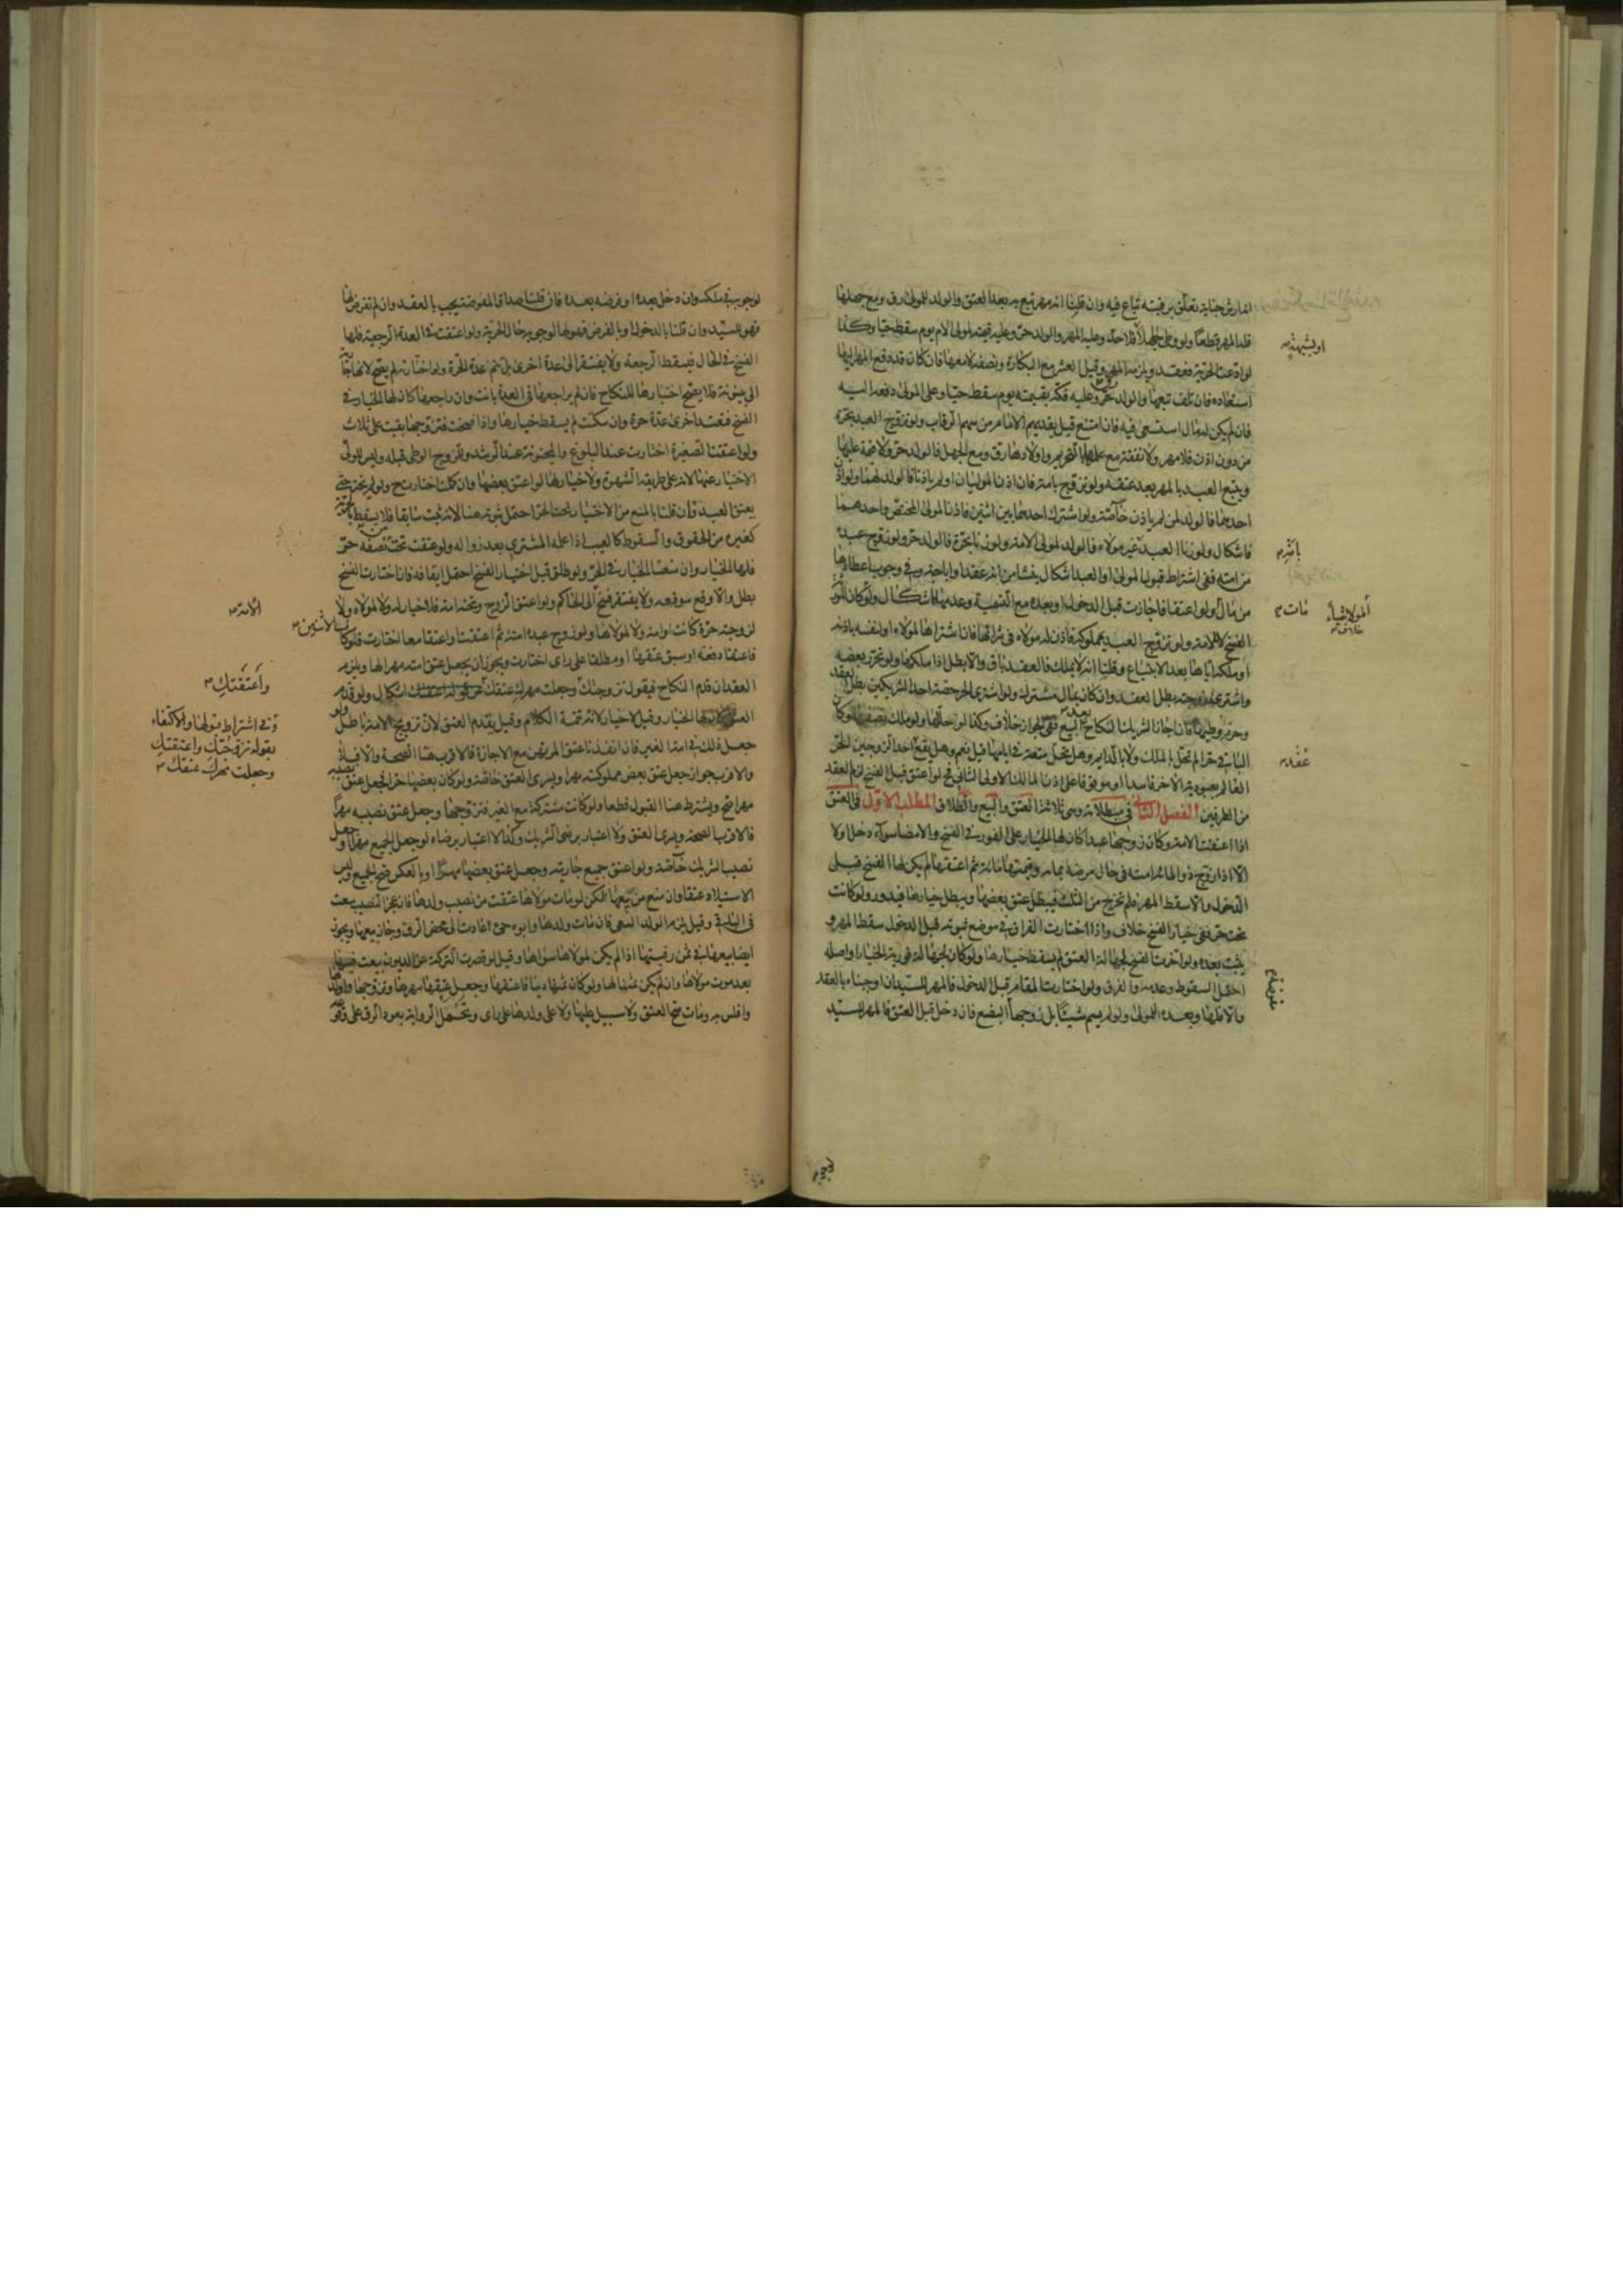 انه ارش جناية تعلق برقبته يباع فيه وان قلنا انه مهر تبع به بعد العتق والولد للمولى رق ومع جهلها
فله المهر قطعا ولو وطئ جهلا فلا حد وعليه المهر والولد حر وعليه قيمته لمولى الام يوم سقط حيا وكذا
لو ادعت الحرية فعقد ويلزمه المهر وقيل العشر مع البكارة ونصفه لا معها فان كان قد دفع المهر اليها
استعاده فان تلف تبعها والولد حر وعليه فكه بقيمته يوم سقط حيا وعلى المولى دفعه اليه
فان لم يكن له مال استسعى فيه فان امتنع قيل يفديهم الامام من سهم الرقاب ولو تزوج العبد بحرة
من دون اذن فلا مهر ولا نفقة مع علمها بالتحريم واولادها رق ومع الجهل فالولد حر ولا قيمة عليها
ويتبع العبد بالمهر بعد عتقه ولو تزوج بامة فان اذن الموليان او لم ياذنا فالولد لهما ولو اذن
احدهما فالولد لمن لم ياذن خاصة ولو اشترك احدهما بين اثنين فاذن مولى المختص واحدهما
فاشكال ولو زنا العبد بامة غير مولاه فالولد لمولى الامة ولو زنا بحرة فالولد حر ولو زوج عبده
من امته ففي اشتراط قبول المولى او العبد اشكال ينشا من انه عقد او اباحة وفي وجوب اعطائها
من ماله ولو اعتقا فاجازت قبل الدخول او بعده مع التسمية وعدمها اشكال ولو كان للمولى
الفسخ لا للامة ولو تزوج العبد بمملوكة فاذن له مولاه في شرائها فان اشتراها لمولاه او لنفسه باذنه
او ملكه اياها بعد الابتياع وقلنا انه لا يملك فالعقد باق والا بطل اذا ملكها ولو تحرر بعضه
واشترى زوجته بطل العقد وان كان بمال مشترك ولو اشترى الحر حصة احد الشريكين بطل العقد
وحرم وطيها فان اجاز الشريك النكاح بعد البيع ففي الجواز خلاف وكذا لو حللها ولو ملك نصفها وكان
الباقي حرا لم تحل بالملك ولا بالدايم وهل تحل متعة في ايامها قيل نعم وهل يقع احد الزوجين الحر
العالم بعبودية الآخر فاسدا او موقوفا على اذن المالك الاولى الثاني فح لو اعتق قبل الفسخ لزم العقد
من الطرفين الفصل الثاني في مبطلاته وهي ثلاثة العتق والبيع والطلاق المطلب الاول في العتق
اذا اعتقت الامة وكان زوجها عبدا كان لها الخيار على الفور في الفسخ والامضاء سواء دخل اولا
الا اذا زوج ذو المائة امته في حال مرضه بمائة وقيمتها مائة ثم اعتقها لم يكن لها الفسخ قبل
الدخول والا سقط المهر فلم تخرج من الثلث فيبطل عتق بعضها ويبطل خيارها فيدور ولو كانت
تحت حر ففي خيار الفسخ خلاف واذا اختارت الفراق في موضع ثبوته قبل الدخول سقط المهر و
يثبت بعده ولو اخرت الفسخ لجهالة العتق لم يسقط خيارها ولو كان لجهالة فورية الخيار او اصله
احتمل السقوط وعدمه والفرق ولو اختارت المقام قبل الدخول فالمهر للسيد ان اوجبناه بالعقد
والا فلها وبعده للمولى ولو لم يسم شيئا بل زوجها البضع فان دخل قبل العتق فالمهر للسيد
او بشبهة
بامة
مات
المولا شيئا
خلاف
عقد
لوجوبه في ملكه وان دخل بعده او فرضه بعده فان قلنا صداق المفوضة يجب بالعقد وان لم تفرض لها
فهو للسيد وان قلنا بالدخول او بالفرض فهو لها لوجوبه حال الحرية ولو اعتقت في العدة الرجعية فلها
الفسخ في الحال فيسقط الرجعة ولا يفتقر الى عدة اخرى بل تتم عدة الحرة ولو اختارته لم يصح لانها جارية
الى بينونة فلا يصح اختيارها للنكاح فان لم يراجعها في العدة بانت وان راجعها كان لها الخيار في
الفسخ فتعتد اخرى عدة حرة وان سكتت لم يسقط خيارها واذا فسخت فتزوجها بقيت على ثلاث
ولو اعتقت الصغيرة اختارت عند البلوغ والمجنونة عند الرشد وللزوج الوطى قبله وليس للولي
الاختيار عنها لانه على طريق الشهوة ولا خيار لها لو اعتق بعضها وان كملت اختارت ح ولو لم تختر حتى
يعتق العبد فان قلنا بالمنع من الاختيار تحت الحر احتمل ثبوته هنا لانه ثبت سابقا فلا يسقط بالحرية
كغيره من الحقوق والسقوط كالعيب اذا علمه المشتري بعد زواله ولو عتقت تحت من نصفه حر
فلها الخيار وان منعنا الخيار في الحر ولو طلق قبل اختيار الفسخ احتمل ايقافه فان اختارت الفسخ
بطل والا وقع موقعه ولا يفتقر فسخ الى الحاكم ولو اعتق الزوج وتحته امة فلا خيار له ولا لمولاه ولا
لزوجته حرة كانت او امة ولا لمولاها ولو زوج عبده امته ثم اعتقت او اعتقا معا اختارت فلو كانا لاثنين
فاعتقا دفعة او سبق عتقها او مطلقا على راى اختارت ويجوز ان يجعل عتق امته مهرا لها ويلزم
العقد ان قدم النكاح فيقول تزوجتك وجعلت مهرك عتقك ولو قدم
العتق كان لها الخيار وقيل لا خيار لانه تتمة الكلام وقيل يقدم العتق لان تزويج الامة باطل ولو
جعل ذلك في امة لغير فان انفذنا عتق المرتهن مع الاجازة فالاقرب هنا الصحة والا فلا
والاقرب جواز جعل عتق بعض مملوكته مهرا ويسرى العتق خاصة ولو كان بعضها حرا فجعل عتق نصيبه
مهرا صح ويشترط هنا القبول قطعا ولو كانت مشتركة مع الغير فتزوجها وجعل عتق نصيبه مهرا
فالاقرب الصحة ويسرى العتق ولا اعتبار برضى الشريك وكذا لا اعتبار برضاه لو جعل الجميع مهرا او جعل
نصيب الشريك خاصة ولو اعتق جميع جاريته وجعل عتق بعضها مهرا او بالعكس صح الجميع وليس
الاستيلاد عتقا وان منع من بيعها لكن لو مات مولاها عتقت من نصيب ولدها فان عجز النصيب سعت
في الباقي وقيل يلزم الولد السعى فان مات ولدها وابوه حي عادت الى محض الرق وجاز بيعها ويجوز
ايضا بيعها في ثمن رقبتها اذا لم يكن لمولاها سواها وقيل لو قصرت التركة عن الديون بيعت فيها
بعد موت مولاها وان لم يكن ثمنا لها ولو كان ثمنها دينا فاعتقها وجعل عتقها مهرها وتزوجها واولدها
وافلس به ومات صح العتق ولا سبيل عليها ولا على ولدها على راى وتحمل الرواية بعود الرق على وقوعه
الامة
لاثنين
واعتقتك
وفي اشتراط قبولها والاكتفاء
بقوله تزوجتك واعتقتك
وجعلت مهرك عتقك